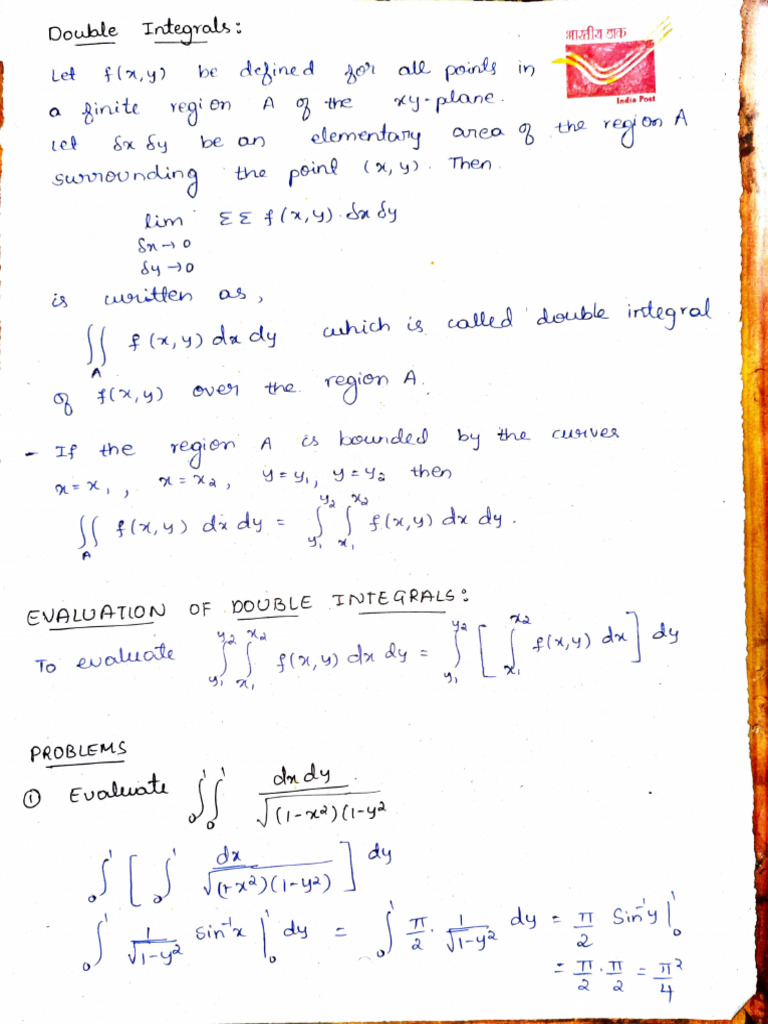 Double Integrals:
भारतीय डाक
India Post
Let f(x,y) be defined for all points in
a finite region A of the xy-plane.
Let δx δy be an elementary area of the region A
surrounding the point (x, y). Then
lim ΣΣ f(x,y) δx δy
δx→0
δy→0
is written as,
∬ f(x,y) dx dy which is called double integral
A
of f(x,y) over the region A.
- If the region A is bounded by the curves
x = x₁, x = x₂, y = y₁, y = y₂ then
∬_A f(x,y) dx dy = ∫_{y₁}^{y₂} ∫_{x₁}^{x₂} f(x,y) dx dy.
EVALUATION OF DOUBLE INTEGRALS:
To evaluate ∫_{y₁}^{y₂} ∫_{x₁}^{x₂} f(x,y) dx dy = ∫_{y₁}^{y₂} [ ∫_{x₁}^{x₂} f(x,y) dx ] dy
PROBLEMS
① Evaluate ∫_0^1 ∫_0^1 dx dy / √(1-x²)(1-y²
∫_0^1 [ ∫_0^1 dx / √(1-x²)(1-y²) ] dy
∫_0^1 1/√1-y² Sin⁻¹x |_0^1 dy = ∫_0^1 π/2 · 1/√1-y² dy = π/2 Sin⁻¹y |_0^1
= π/2 · π/2 = π²/4